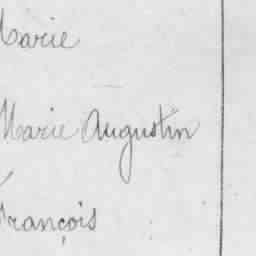 Marie
Marie Augustin
François